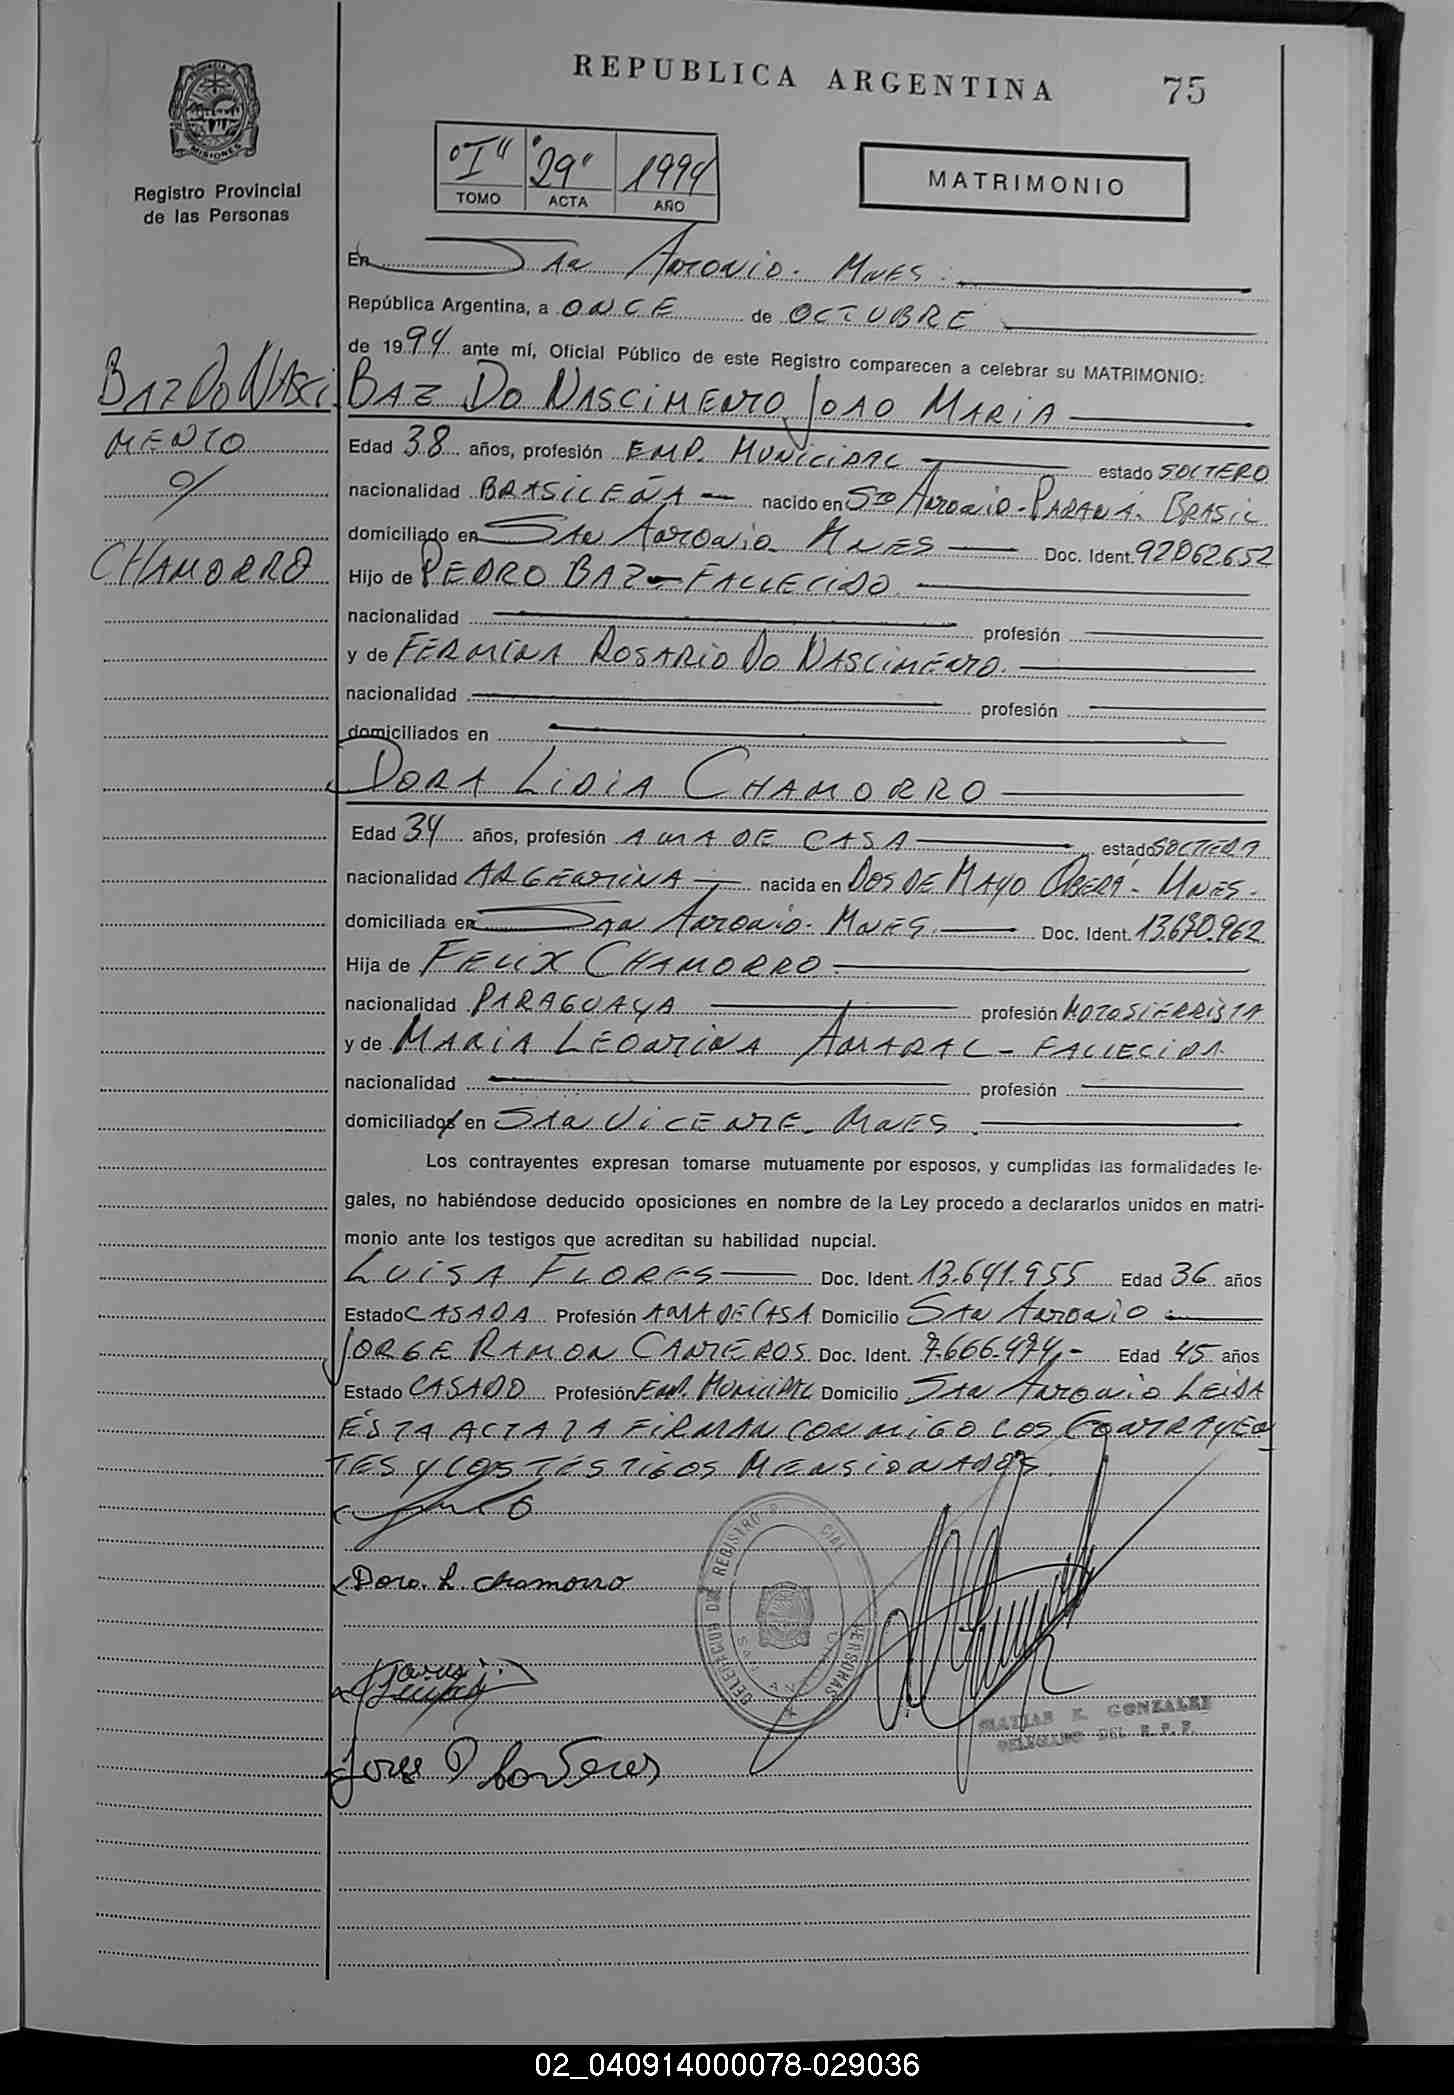 REPUBLICA ARGENTINA 75
PROVINCIA DE
MISIONES
Registro Provincial
de las Personas
"I" "29" 1994
TOMO ACTA AÑO
MATRIMONIO
En San Antonio. Mnes.
República Argentina, a ONCE de OCTUBRE
de 1994 ante mí, Oficial Público de este Registro comparecen a celebrar su MATRIMONIO:
BAZ DO NASCI
MENTO
c/
CHAMORRO
BAZ DO NASCIMENTO JOAO MARIA
Edad 38 años, profesión EMP. MUNICIPAL estado SOLTERO
nacionalidad BRASILEÑA nacido en Sto ANTONIO-PARANÁ. BRASIL
domiciliado en SAN ANTONIO. MNES Doc. Ident. 92062652
Hijo de PEDRO BAZ-FALLECIDO.
nacionalidad profesión
y de FERMINA ROSARIO DO NASCIMENTO.
nacionalidad profesión
domiciliados en
DORA LIDIA CHAMORRO
Edad 34 años, profesión AMA DE CASA estado SOLTERA
nacionalidad ARGENTINA nacida en DOS DE MAYO OBERÁ- MNES-
domiciliada en SAN ANTONIO- MNES. Doc. Ident. 13.670.962
Hija de FELIX CHAMORRO
nacionalidad PARAGUAYA profesión MOTOSIERRISTA
y de MARIA LEONTINA AMARAL- FALLECIDA
nacionalidad profesión
domiciliados en SAN VICENTE. MNES.
Los contrayentes expresan tomarse mutuamente por esposos, y cumplidas las formalidades le-
gales, no habiéndose deducido oposiciones en nombre de la Ley procedo a declararlos unidos en matri-
monio ante los testigos que acreditan su habilidad nupcial.
LUISA FLORES Doc. Ident. 13.641.955 Edad 36 años
Estado CASADA Profesión AMA DE CASA Domicilio SAN ANTONIO
JORGE RAMON CANTEROS Doc. Ident. 7.666.474.- Edad 45 años
Estado CASADO Profesión EMP. MUNICIPAL Domicilio SAN ANTONIO LEIDA
ÉSTA ACTA LA FIRMAN CONMIGO LOS CONTRAYEN
TES Y LOS TESTIGOS MENSIONADOS.
Dora. L. Chamorro
DELEGACION DEL REGISTRO PERSONAS
SAN ANTONIO
MATIAS E. GONZALEZ
DELEGADO DEL R. P. P.
Jorge R Canteros
02_040914000078-029036